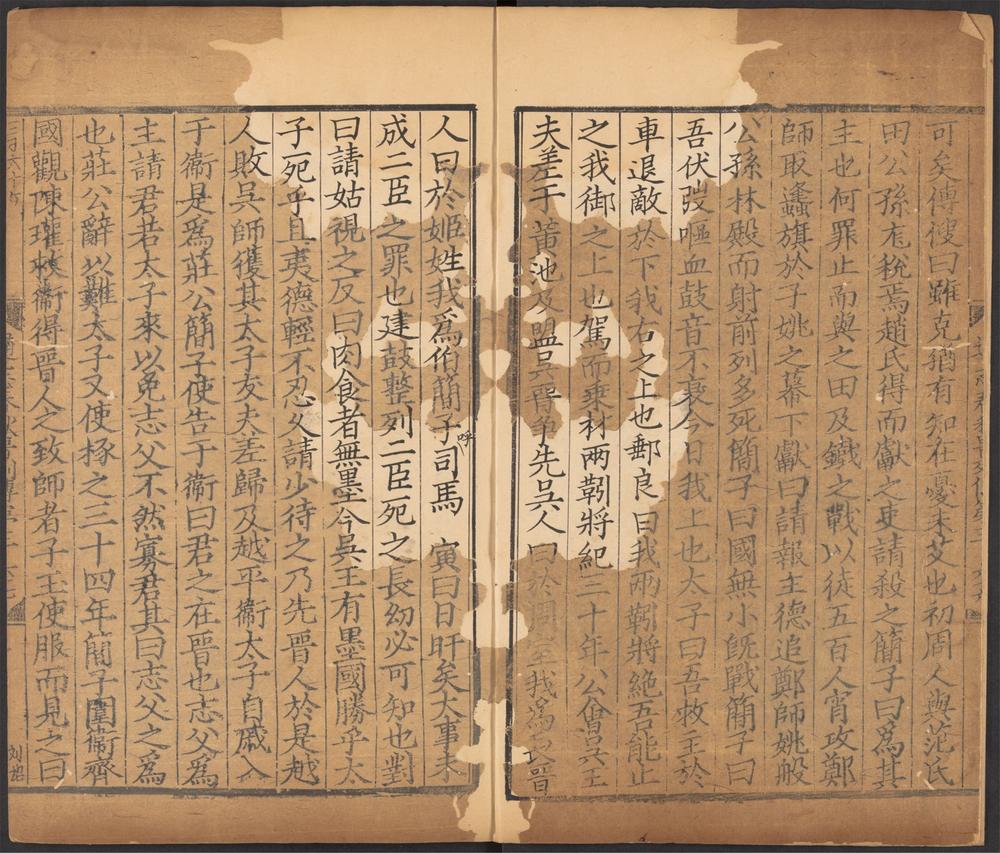 可矣傅傁曰雖克猶有知在憂未艾也初周人與范氏
田公孫尨稅焉趙氏得而獻之吏請殺之簡子曰爲其
主也何罪止而與之田及鐵之戰以徒五百人宵攻鄭
師取蠭旗於子姚之幕下獻曰請報主德追鄭師姚般
公孫林殿而射前列多死簡子曰國無小既戰簡子曰
吾伏弢嘔血鼓音不衰今日我上也太子曰吾救主於
車退敵於下我右之上也郵良曰我兩靷將絶吾能止
之我御之上也駕而乘材兩靷將絶三十年公會呉王
夫差于黃池及盟呉晋爭先呉人曰於周室我爲長晉
人曰於姬姓我爲伯簡子呼司馬寅曰日旰矣大事未
成二臣之罪也建鼓整列二臣死之長幼必可知也對
曰請姑視之反曰肉食者無墨今呉王有墨國勝乎太
子死乎且夷德輕不忍乆請少待之乃先晋人於是越
人敗呉師獲其太子友夫差歸及越平衞太子自戚入
于衞是爲莊公簡子使告于衞曰君之在晋也志父爲
主請君若太子來以免志父不然寡君其曰志父之爲
也莊公辭以難太子又使椓之三十四年簡子圍衞齊
國觀陳瓘救衞得晋人之致師者子玉使服而見之曰